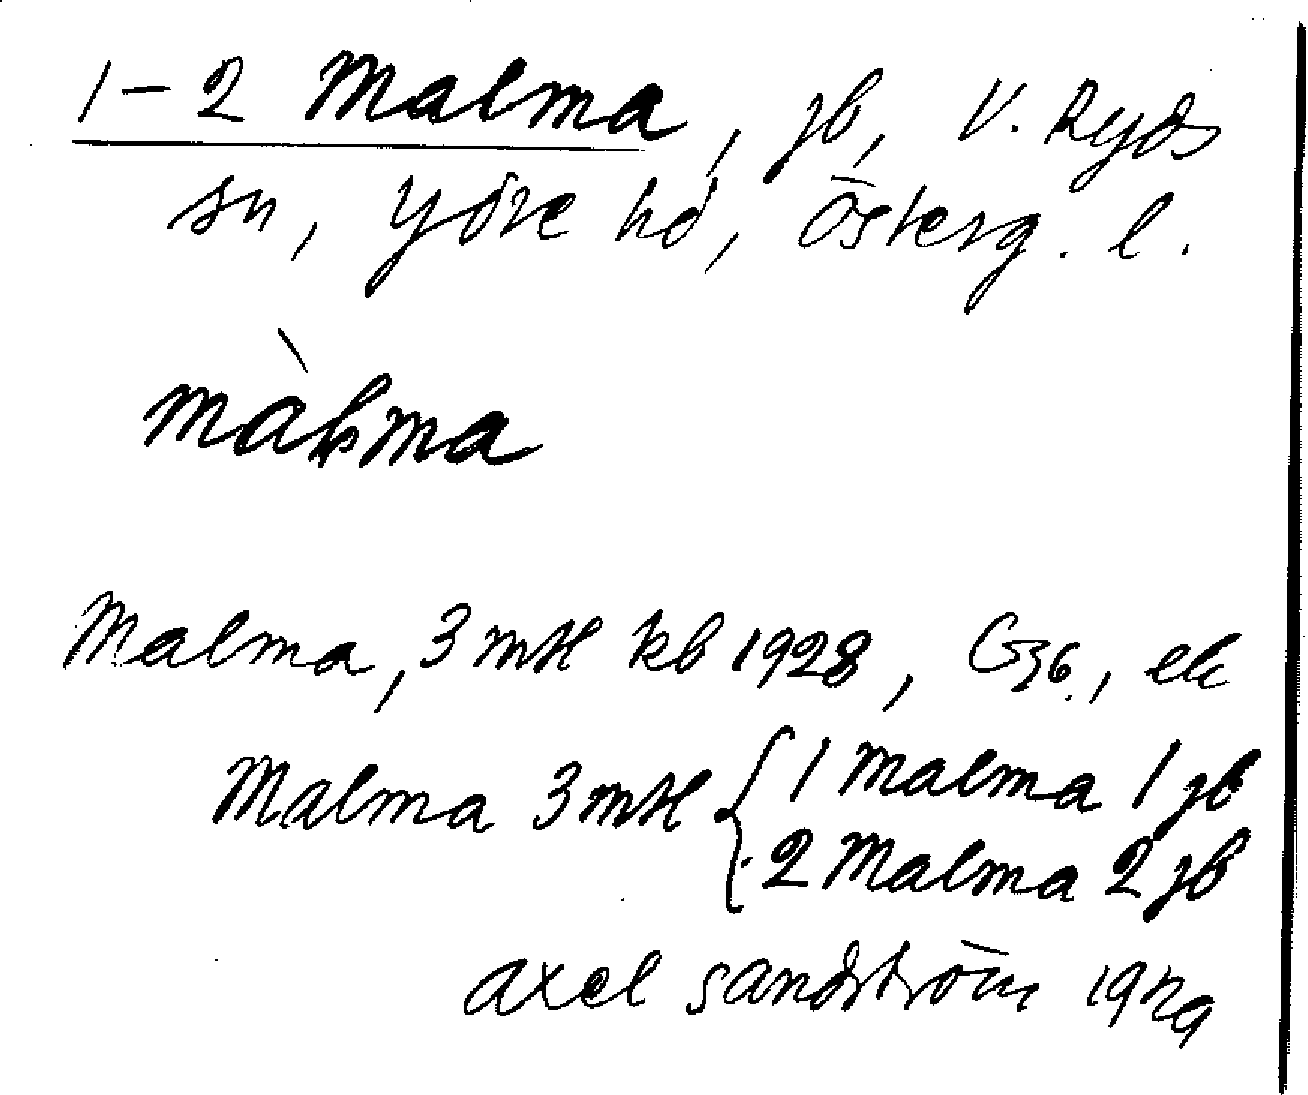 1-2 Malma, jb, V. Ryds
sn, Ydre hd, Österg. l.
màlma
Malma, 3 mtl kb 1928, G36., ek
Malma 3 mtl { 1 Malma 1 jb
2 Malma 2 jb
Axel Sandström 1929